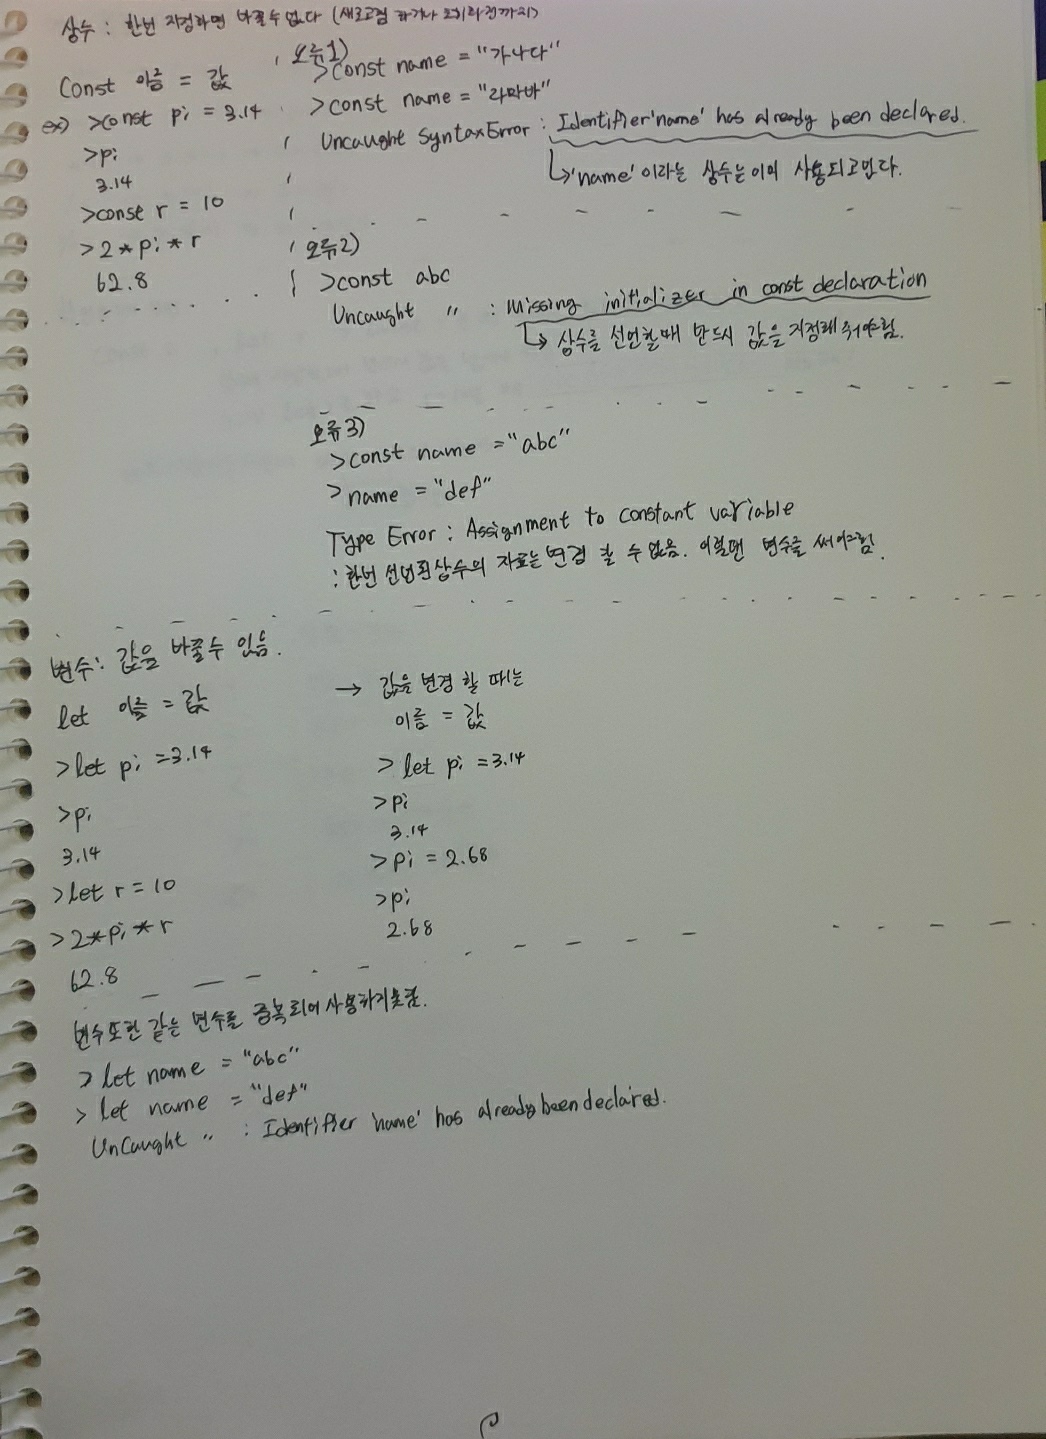 상수 : 한번 지정하면 바꿀수 없다 (새로고침 하거나 초기화전까지)
Const 이름 = 값
ex) >const pi = 3.14
>pi
3.14
>const r = 10
>2*pi*r
62.8
오류1)
>const name = "가나다"
>const name = "라마바"
Uncaught SyntaxError : Identifier 'name' has already been declared.
↳'name' 이라는 상수는 이미 사용되고있다.
오류2)
>const abc
Uncaught 〃 : Missing initializer in const declaration
↳ 상수를 선언할때 반드시 값을 지정해 줘야함.
오류3)
>const name = "abc"
>name = "def"
Type Error : Assignment to constant variable
: 한번 선언된상수의 자료는 변경 할 수 없음. 이럴땐 변수를 써야함.
변수: 값을 바꿀수 있음.
let 이름 = 값
>let pi =3.14
>pi
3.14
>let r = 10
>2*pi*r
62.8
→ 값을 변경 할 때는
이름 = 값
> let pi =3.14
>pi
3.14
>pi = 2.68
>pi
2.68
변수또한 같은 변수를 중복되어 사용하지못함.
> let name = "abc"
> let name = "def"
UnCaught 〃 : Identifier 'name' has already been declared.